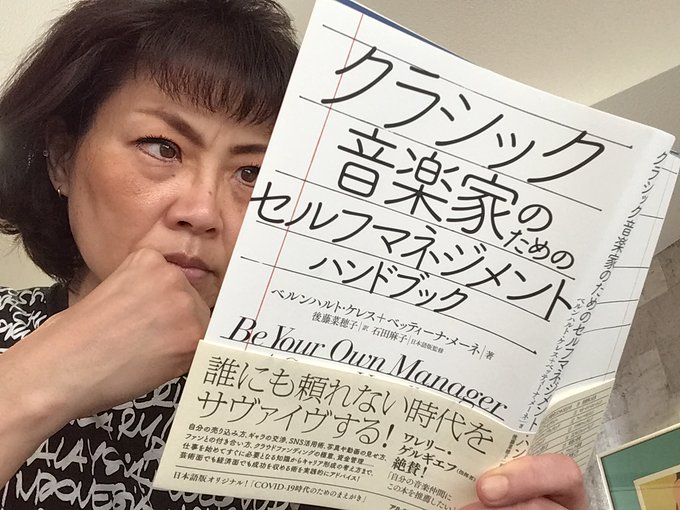 クラシック
音楽家の
ための
セルフマネジメント
ハンドブック
ベルンハルト・ケレス+ベッティーナ・メーネ 著
後藤菜穂子 訳 石田麻子 日本語版監修
Be Your Own Manager
誰にも頼れない時代を
サヴァイヴする!
自分の売り込み方、ギャラの交渉、SNS活用術、写真や動画の見せ方、
ファンとの付き合い方、クラウドファンディングの極意、資金管理…
仕事を始めてすぐに必要となる知識からキャリア形成の考え方まで、
芸術面でも経済面でも成功を収める術を実践的にアドバイス!
日本語版オリジナル!「COVID-19時代のためのまえがき」
ワレリー・
ゲルギエフ(指揮者)
絶賛!
「自分の音楽仲間に
この本を推薦したい!
クラシック音楽家のためのセルフマネジメント
ベルンハルト・ケレス+ベッティーナ・メーネ
ハン